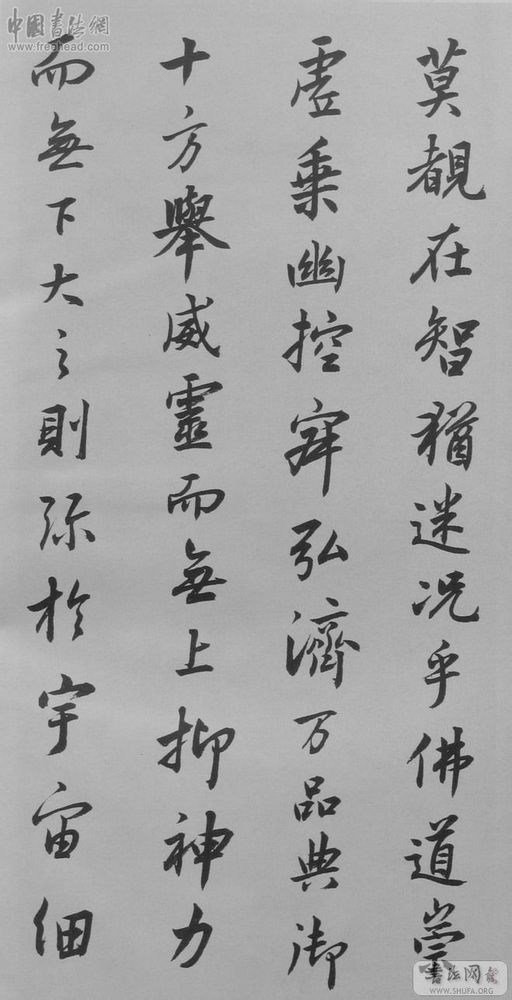 中国书法網
www.freehead.com
莫覩在智猶迷况乎佛道崇
虗乗幽控寂弘濟万品典御
十方舉威靈而無上抑神力
而無下大之則弥於宇宙细
書法网
WWW.SHUFA.ORG